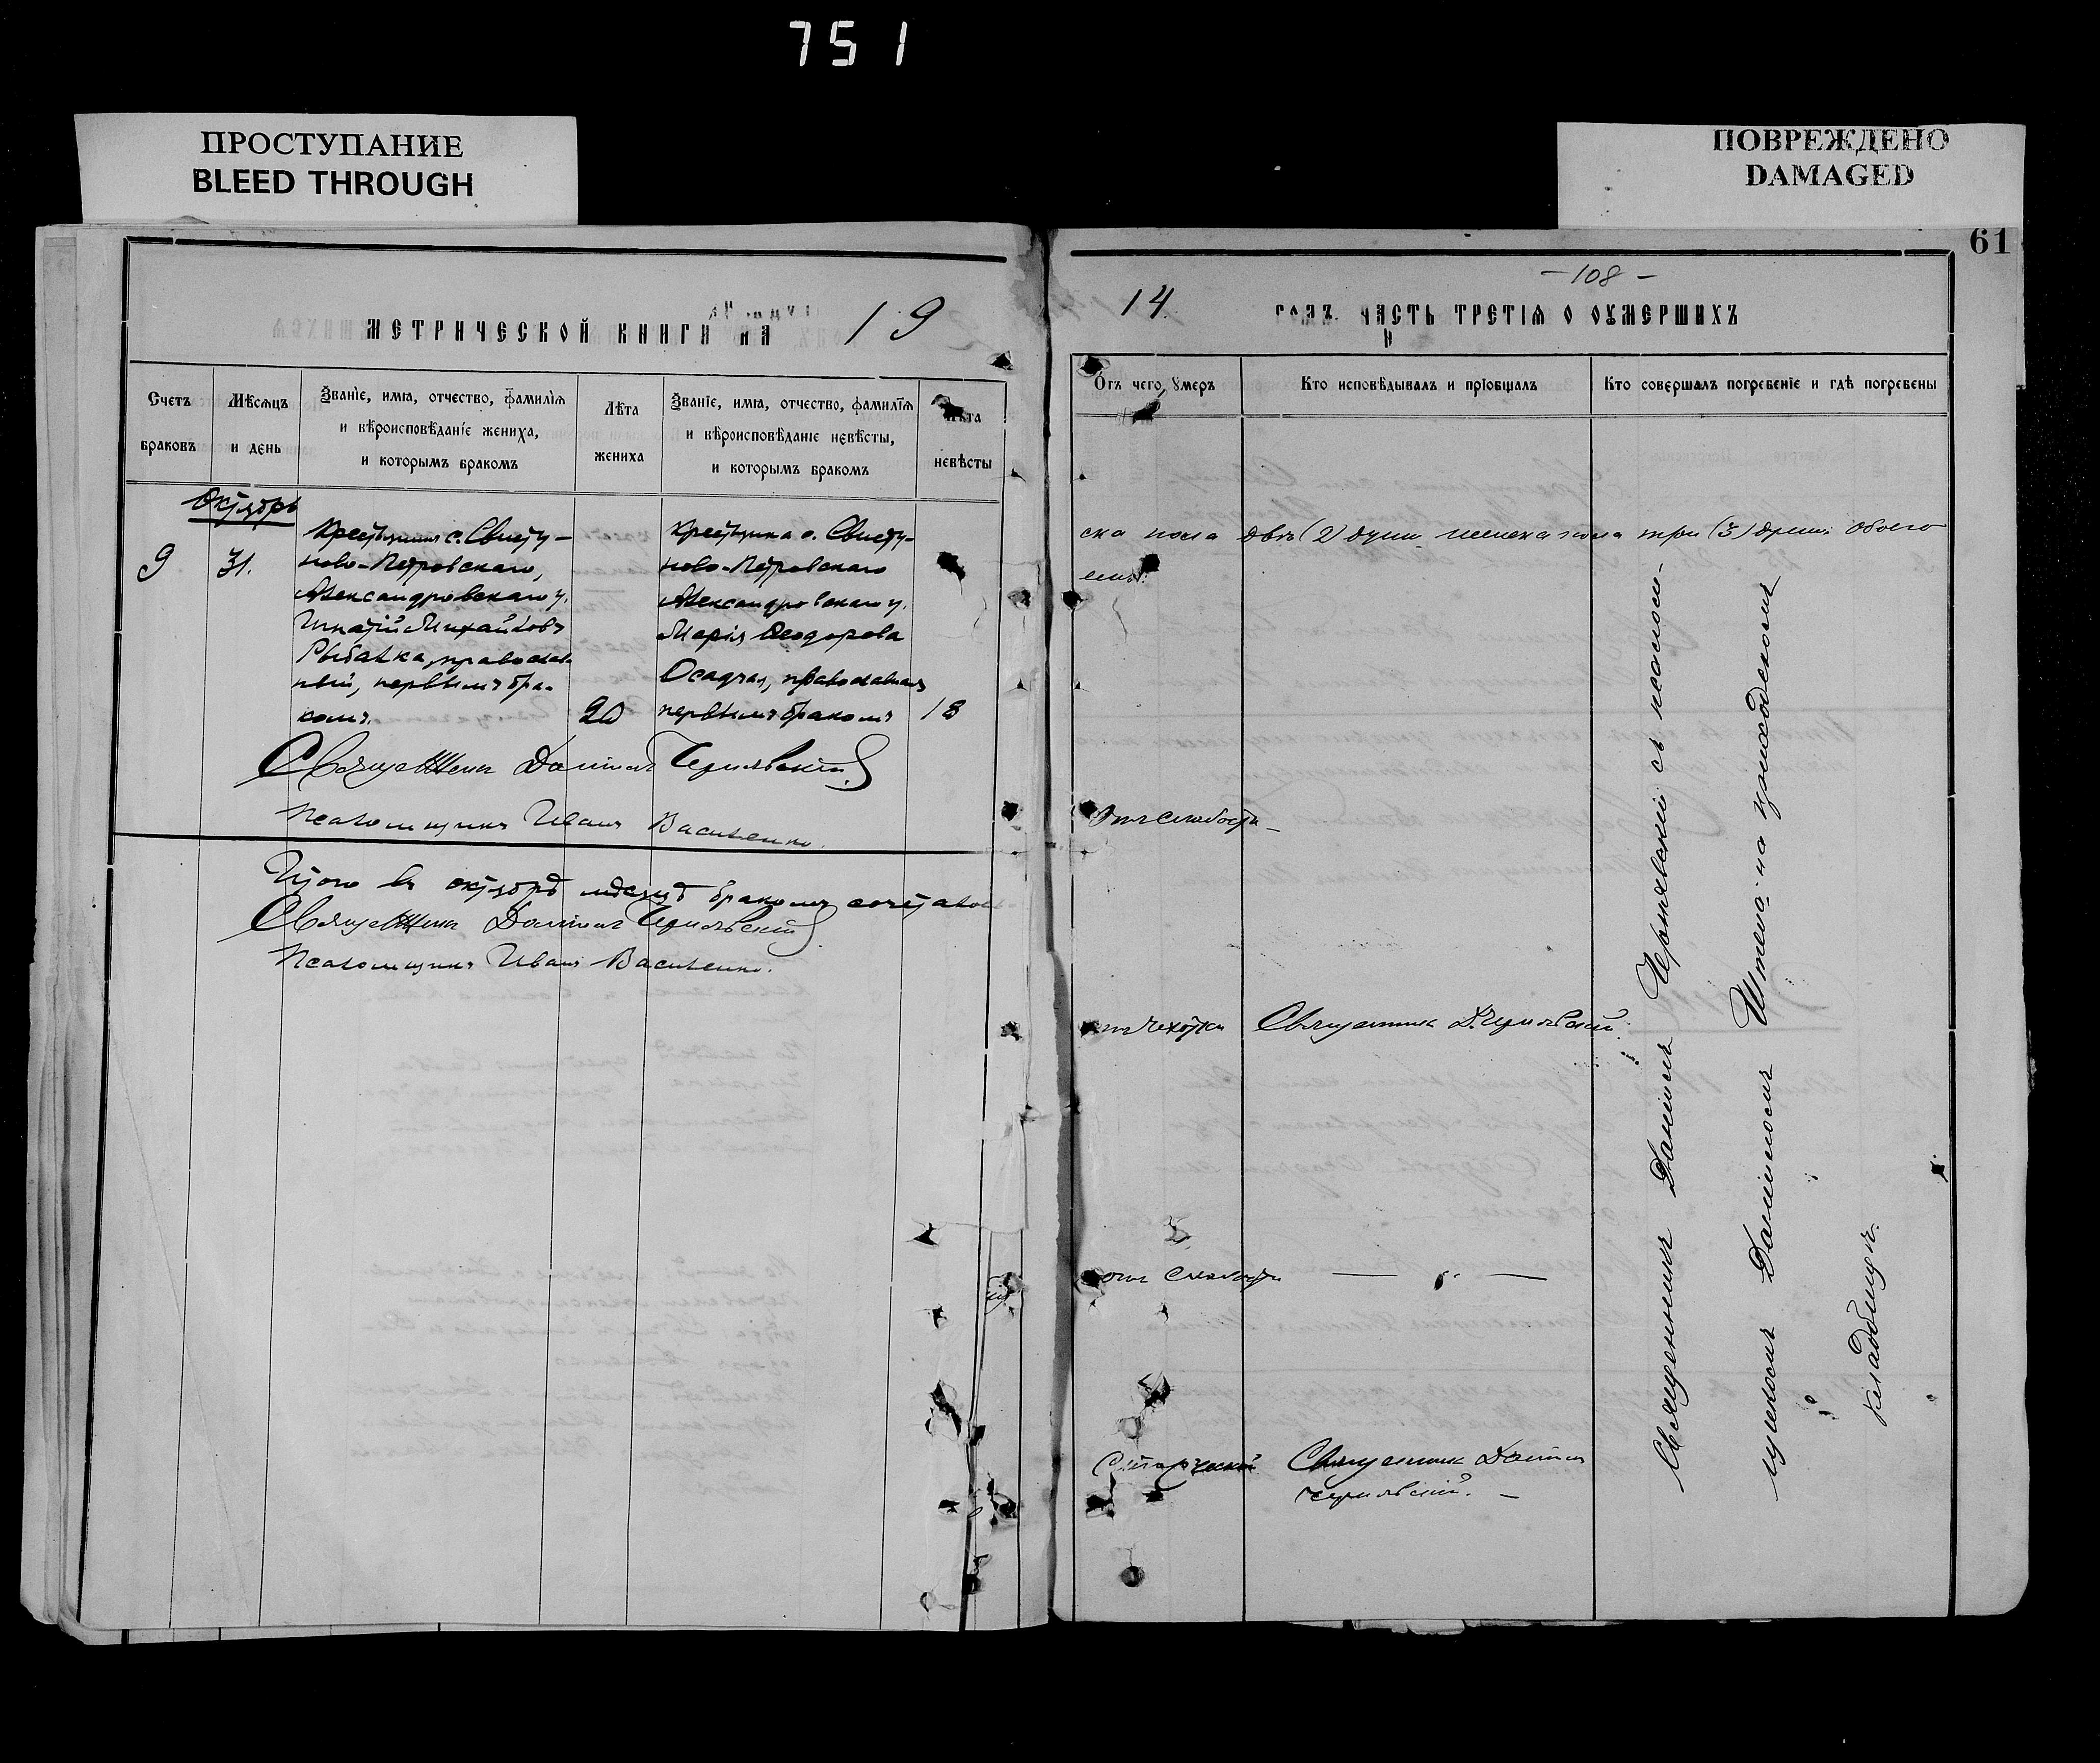 751
ПРОСТУПАНИЕ
BLEED THROUGH
ПОВРЕЖДЕНО
DAMAGED
МЕТРИЧЕСКОЙ КНИГИ НА 19
Счетъ браковъ
Мѣсяцъ и день
Званіе, имя, отчество, фамилія
и вѣроисповѣданіе жениха,
и которымъ бракомъ
Лѣта
жениха
Званіе, имя, отчество, фамилія
и вѣроисповѣданіе невѣсты,
и которымъ бракомъ
Лѣта
невѣсты
Октябрь
9
31.
Крестьянинъ с. Свисту-
ново-Петровскаго,
Александровскаго у.
Игнатій Михайловъ
Рыбалка, православ-
ный, первымъ бра-
комъ.
20
Крестьянка с. Свисту-
ново-Петровскаго
Александровскаго у.
Марія Ѳеодорова
Осадчая, православная
первымъ бракомъ
18
Священникъ Даніилъ Чернявскій
Псаломщикъ Иванъ Василенко.
Итого въ октябрѣ мѣсяцѣ бракомъ сочетало
Священникъ Даніилъ Чернявскій
Псаломщикъ Иванъ Василенко.
61
-108-
14 годъ часть третія о оумершихъ
Отъ чего умеръ
Кто исповѣдывалъ и пріобщалъ
Кто совершалъ погребеніе и гдѣ погребены
ска пола двѣ (2) души женска пола три (3) души обоего
Отъ слабости
отъ чехотки
Священникъ Д. Чернявскій
отъ слабости — " —
Старческой
Священникъ Даніилъ
Чернявскій. —
Священникъ Даніилъ Чернявскій съ псалом-
щикомъ Даніиломъ на приходскомъ
кладбищѣ.